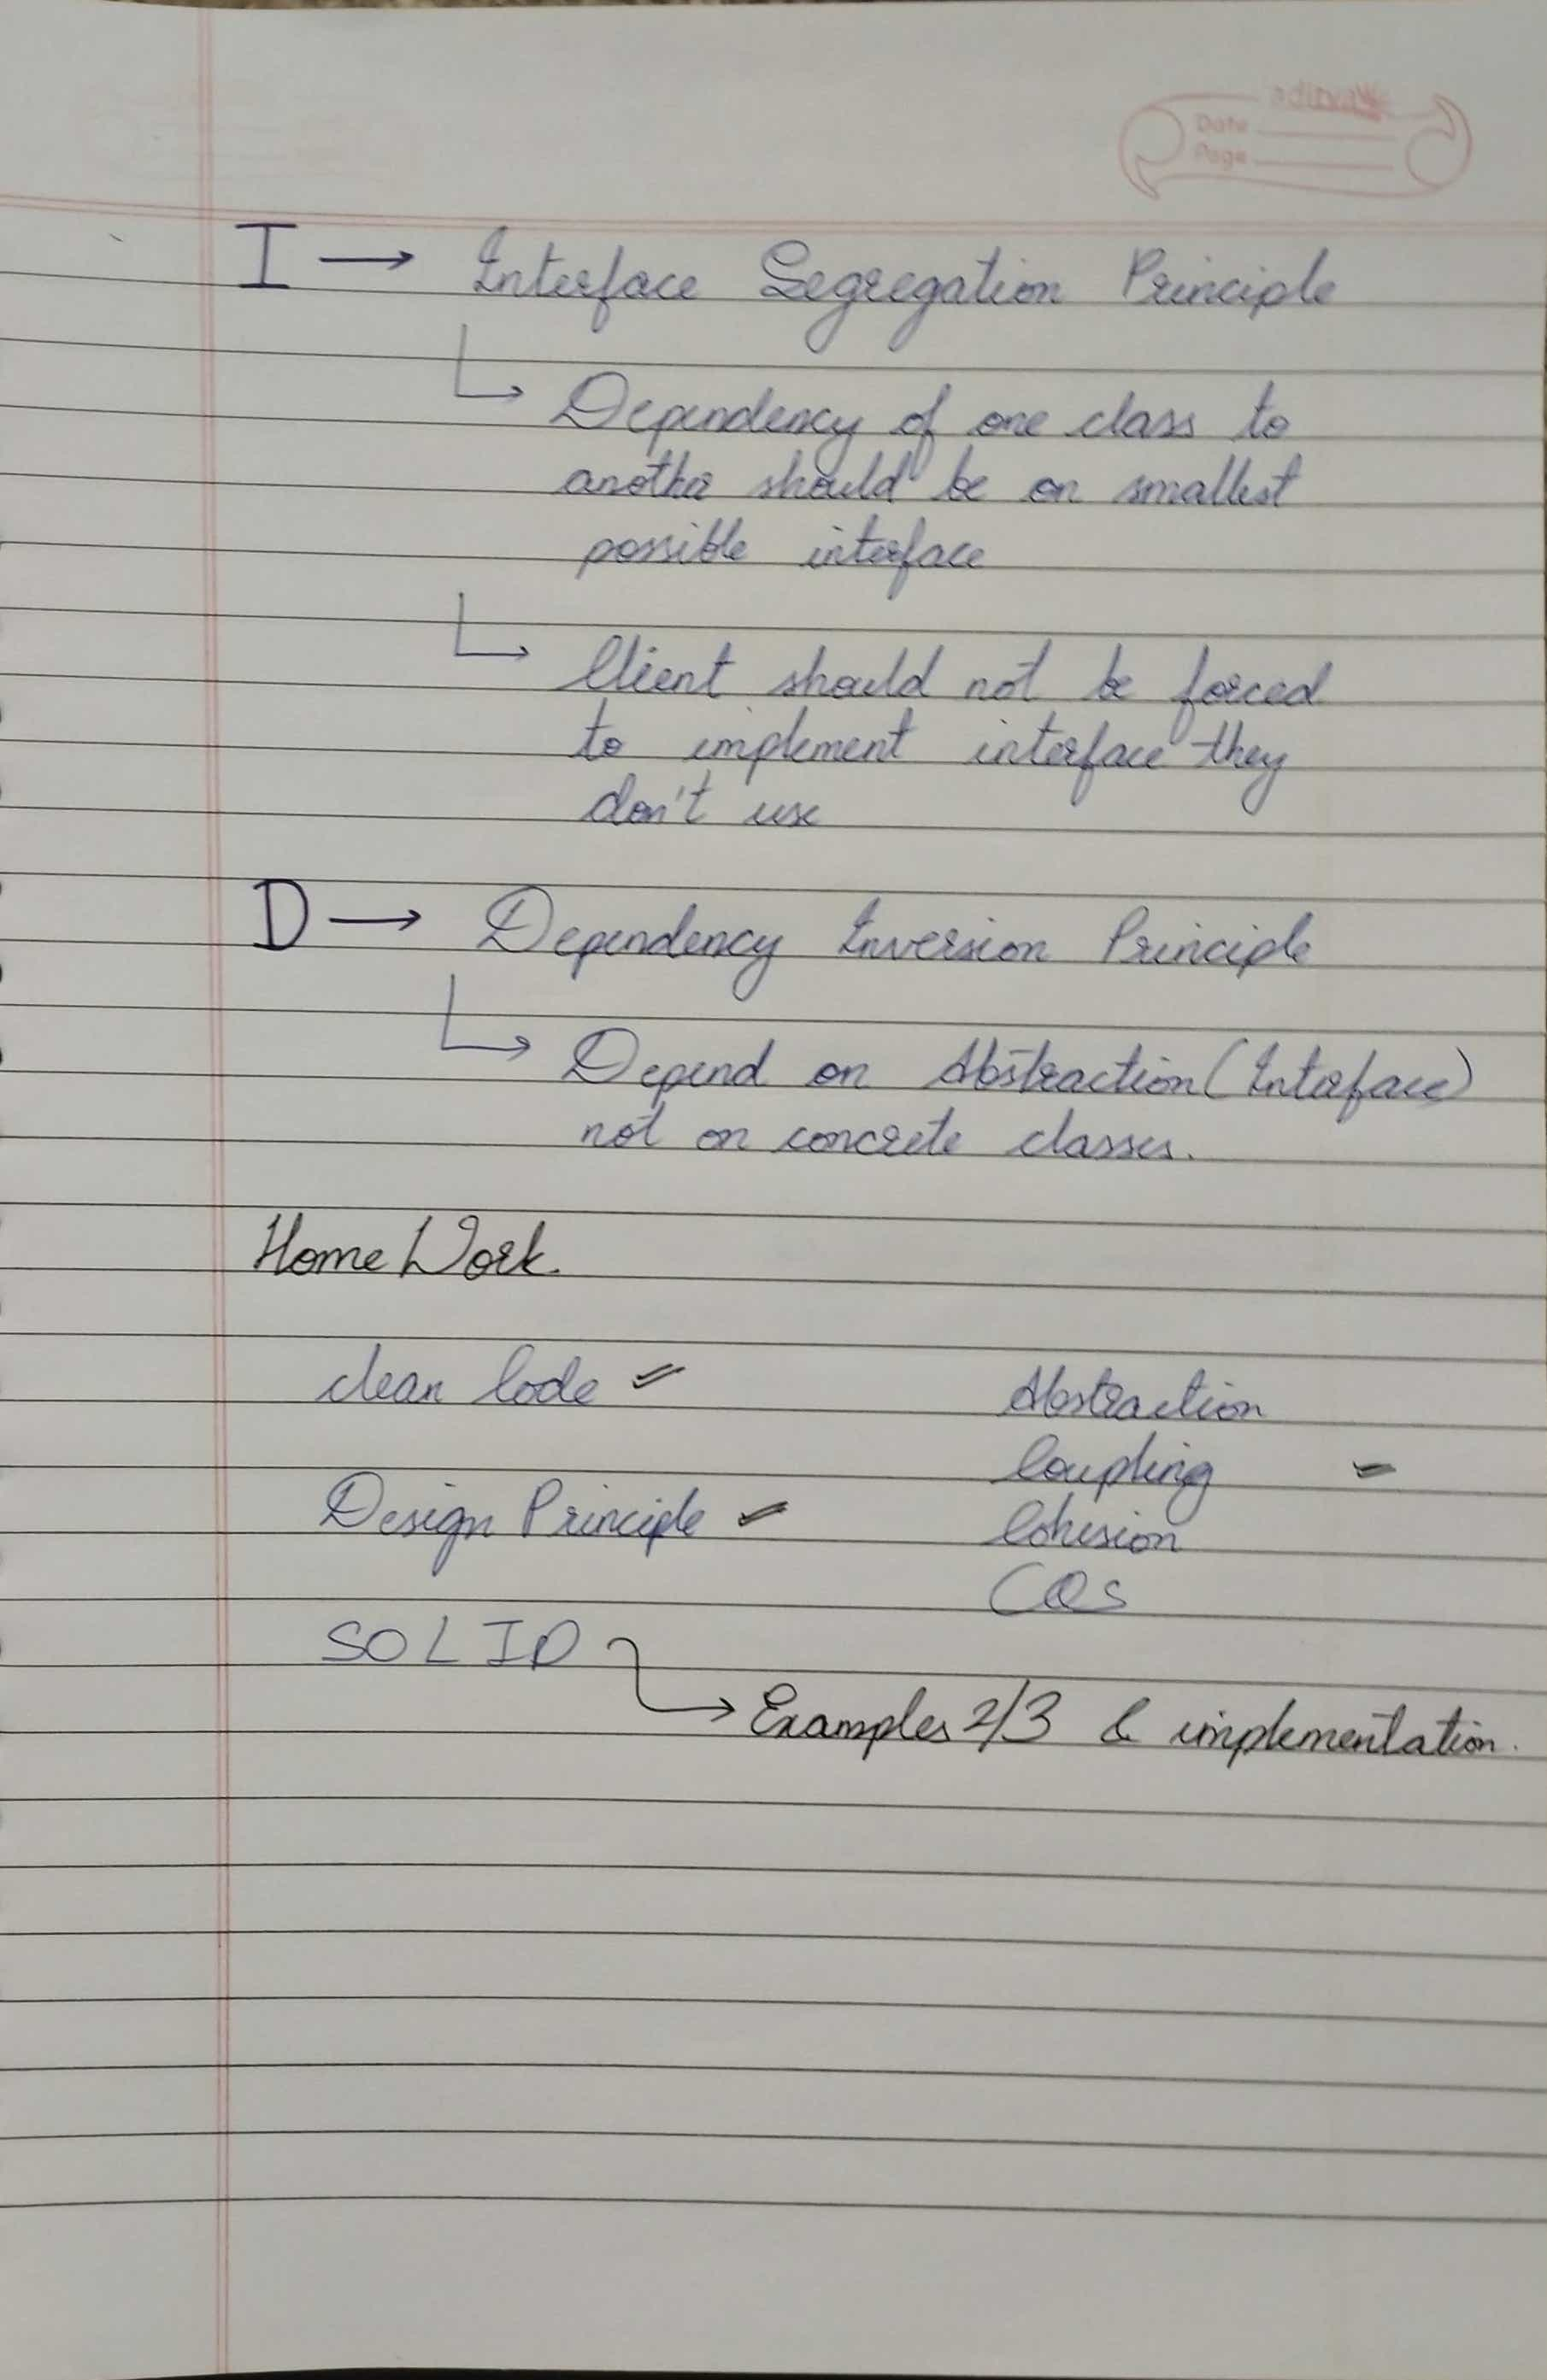 aditya
Date
Page
I → Interface Segregation Principle
↳ Dependency of one class to
another should be on smallest
possible interface
↳ Client should not be forced
to implement interface they
don't use
D → Dependency Inversion Principle
↳ Depend on Abstraction (Interface)
not on concrete classes.
Home Work.
clean Code
Abstraction
Coupling
Design Principle
Cohesion
CQS
SOLID
→ Examples 2/3 & implementation.